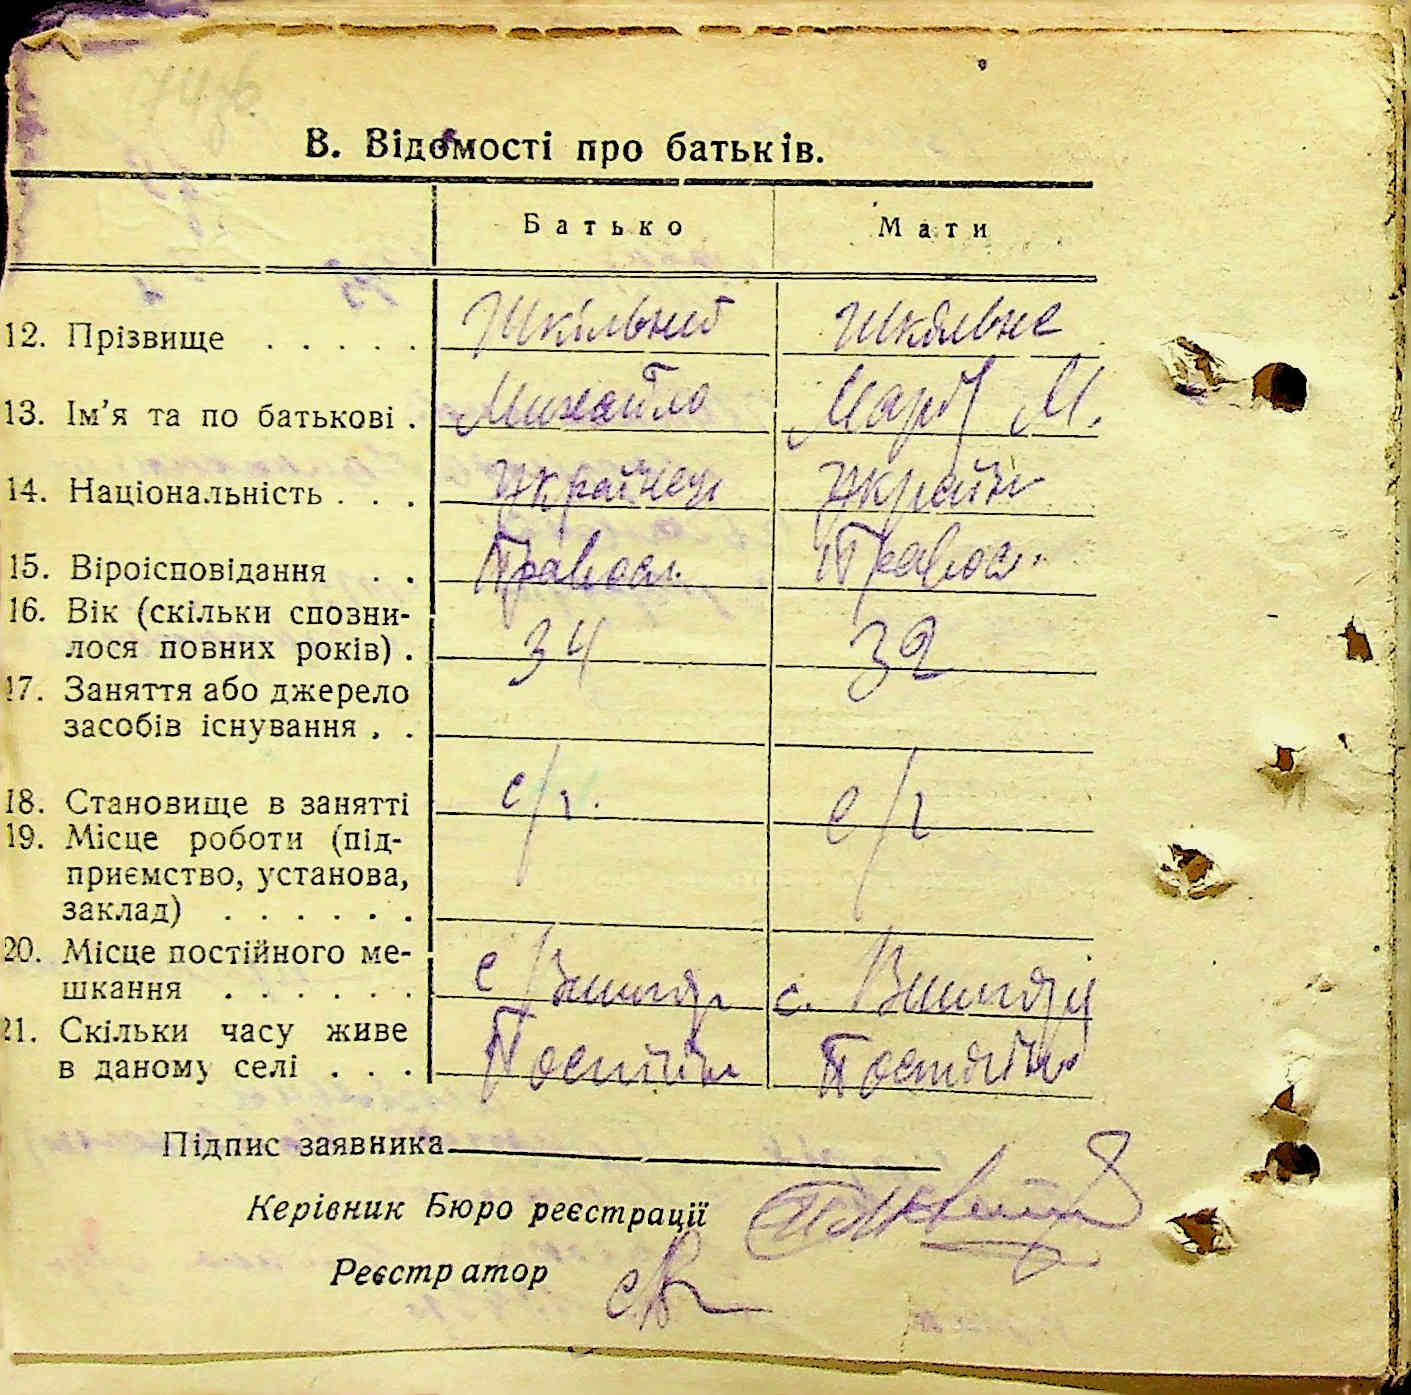 В. Відомості про батьків.
Батько Мати
12. Прізвище . . . . . Шкільний Шкільна
13. Ім'я та по батькові . Михайло Марія М.
14. Національність . . . Українец Україн
15. Віроісповідання . . Правосл. Правосл.
16. Вік (скільки спозни-
лося повних років) . 34 32
17. Заняття або джерело
засобів існування . .
18. Становище в занятті с/г. с/г
19. Місце роботи (під-
приємство, установа,
заклад) . . . . . .
20. Місце постійного ме-
шкання . . . . . . с с.
21. Скільки часу живе
в даному селі . . . Постійн Постійн
Підпис заявника
Керівник Бюро реєстрації
Реєстратор